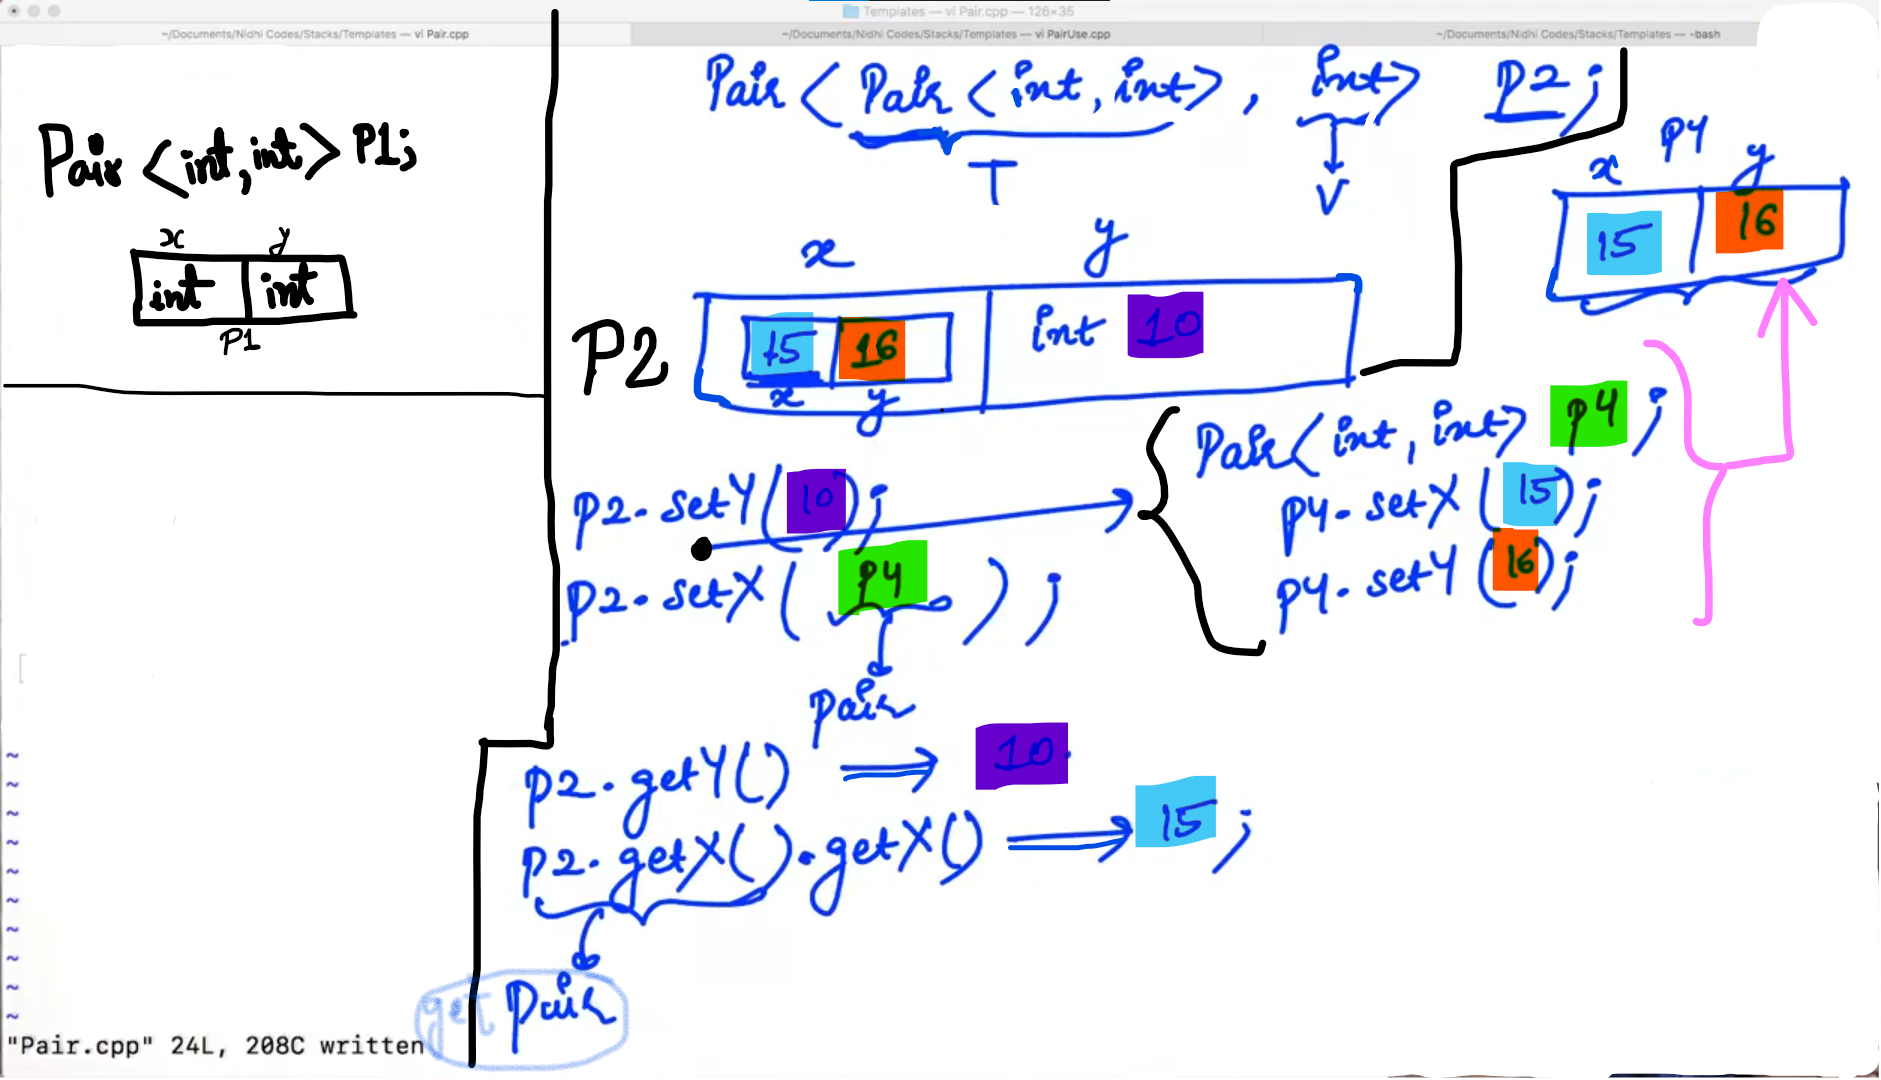 Templates — vi Pair.cpp — 126×35
~/Documents/Nidhi Codes/Stacks/Templates — vi Pair.cpp
~/Documents/Nidhi Codes/Stacks/Templates — vi PairUse.cpp
~/Documents/Nidhi Codes/Stacks/Templates — -bash
Pair <int,int> P1;
x y
int int
P1
Pair < Pair <int, int>, int> P2;
T V
x y
P2
15 16 int 10
x y
P4
x y
15 16
p2.setY(10);
p2.setX( p4 );
Pair
Pair<int, int> p4;
p4.setX(15);
p4.setY(16);
p2.getY() ⟹ 10.
p2.getX().getX() ⟹ 15;
get Pair
~
~
~
~
~
~
~
~
~
~
"Pair.cpp" 24L, 208C written